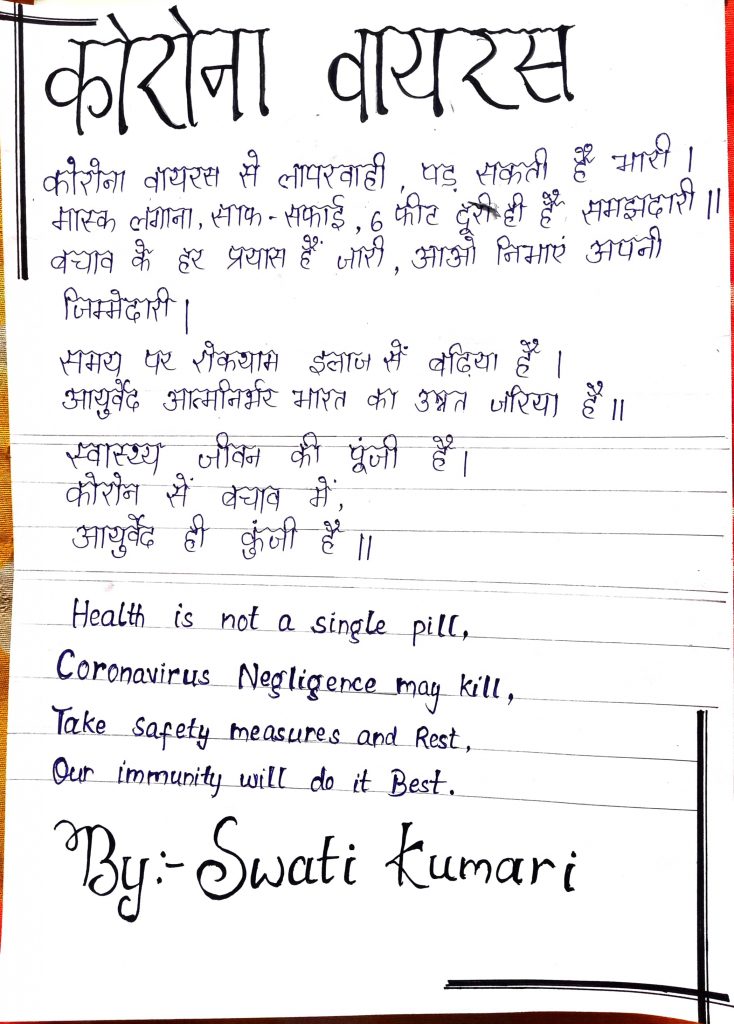 कोरोना वायरस
कोरोना वायरस से लापरवाही, पड़ सकती हैं भारी |
मास्क लगाना, साफ-सफाई, 6 फीट दूरी ही हैं समझदारी ||
बचाव के हर प्रयास हैं जारी, आओ निभाएं अपनी
जिम्मेदारी |
समय पर रोकथाम इलाज सें बढ़िया हैं |
आयुर्वेद आत्मनिर्भर भारत का उन्नत जरिया हैं ||
स्वास्थ्य जीवन की पूंजी हैं |
कोरोन सें बचाव में,
आयुर्वेद ही कुंजी हैं ||
Health is not a single pill,
Coronavirus Negligence may kill,
Take safety measures and Rest,
Our immunity will do it Best.
By:- Swati Kumari